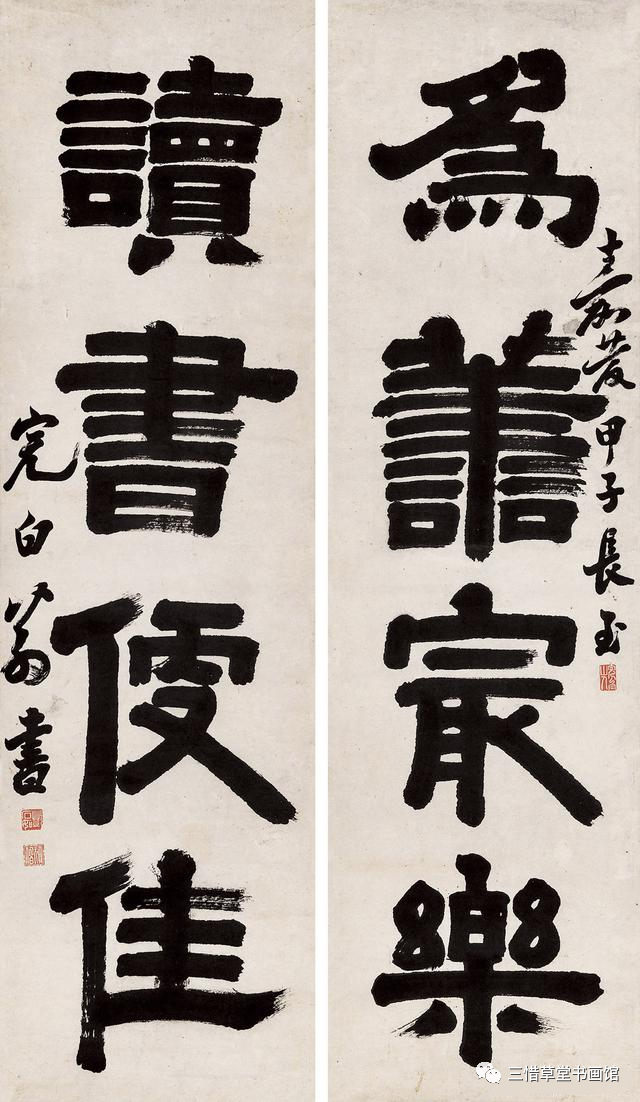 嘉慶甲子長至
爲譱㝡樂
讀書便佳
完白翁書
三惜草堂书画馆